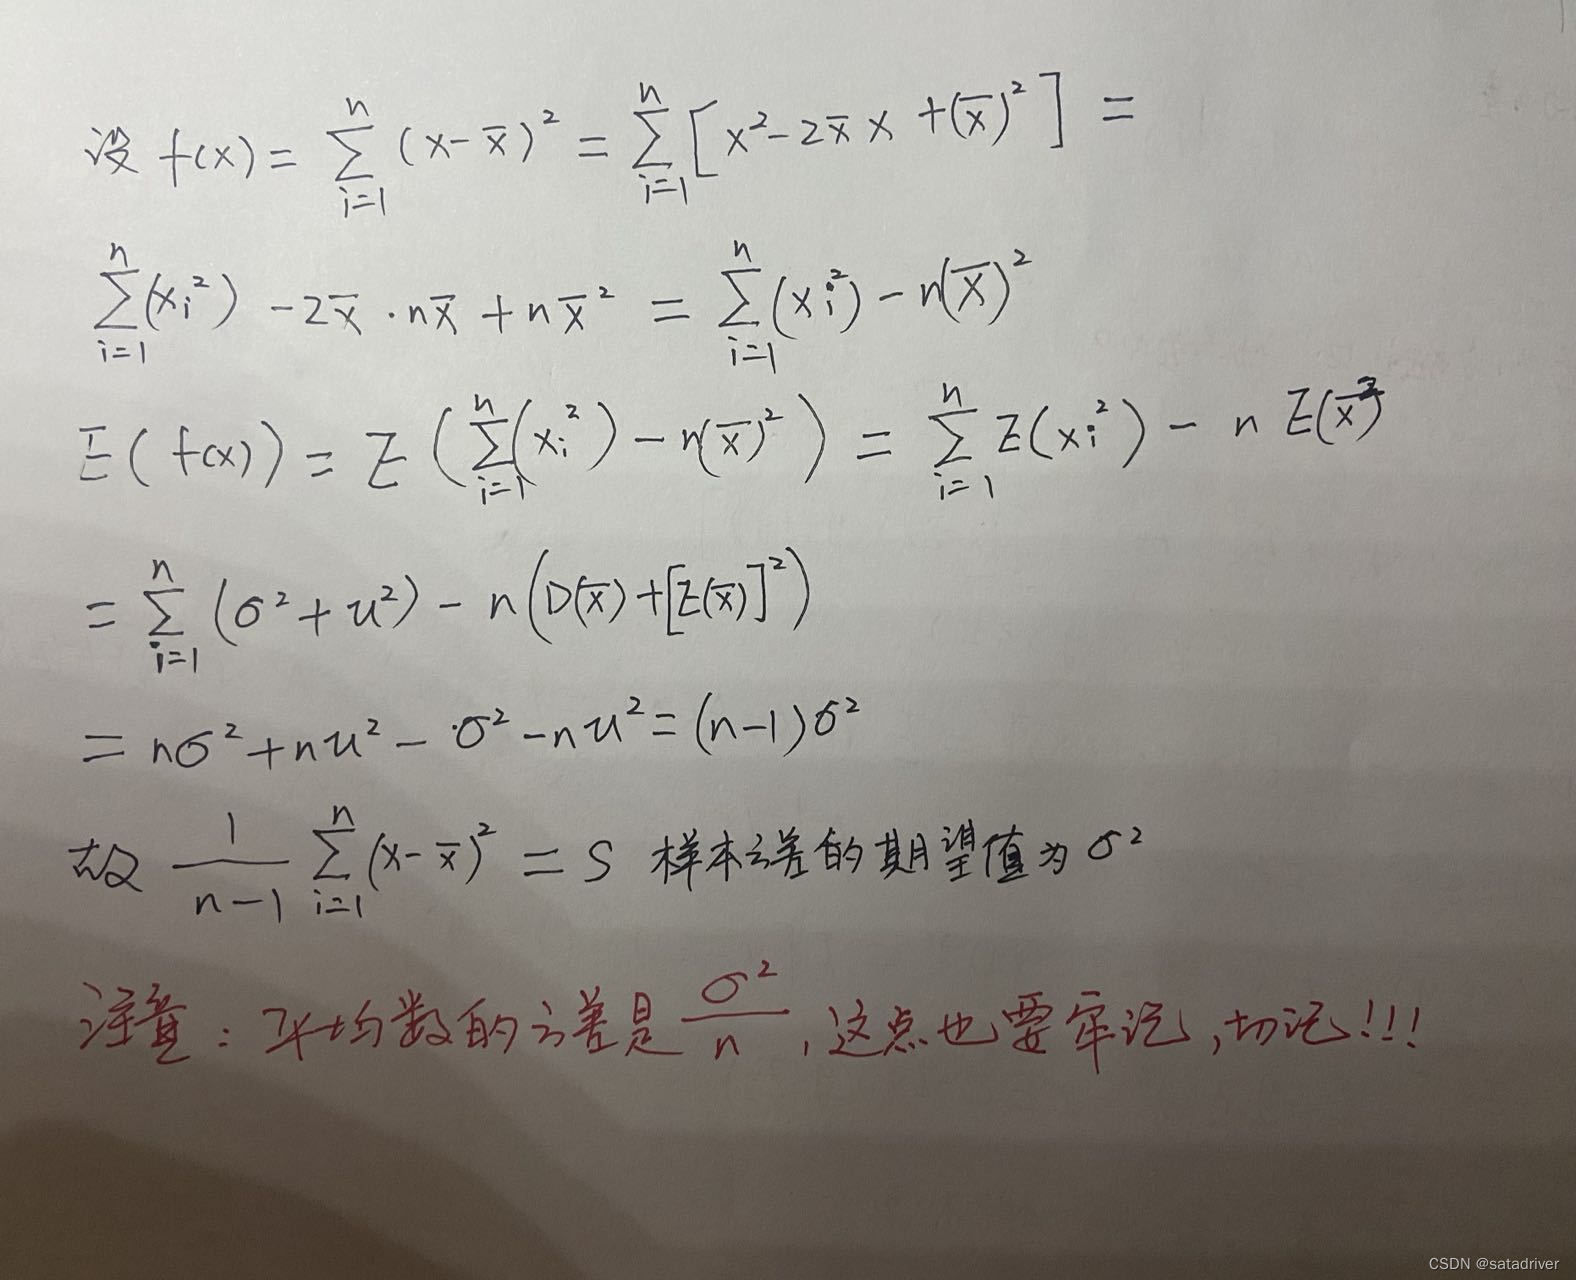 设 f(x) = ∑_{i=1}^{n} (x-x̅)² = ∑_{i=1}^{n} [x²-2x̅x+(x̅)²] =
∑_{i=1}^{n} (xᵢ²) -2x̅·nx̅ + nx̅² = ∑_{i=1}^{n} (xᵢ²) - n(x̅)²
E(f(x)) = E(∑_{i=1}^{n} (xᵢ²) - n(x̅)²) = ∑_{i=1}^{n} E(xᵢ²) - n E(x̅²)
= ∑_{i=1}^{n} (σ²+u²) - n(D(x̅)+[E(x̅)]²)
= nσ²+nu² - σ² - nu² = (n-1)σ²
故 1/(n-1) ∑_{i=1}^{n} (x-x̅)² = S 样本方差的期望值为σ²
注意：平均数的方差是 σ²/n，这点也要牢记，切记!!!
CSDN @satadriver